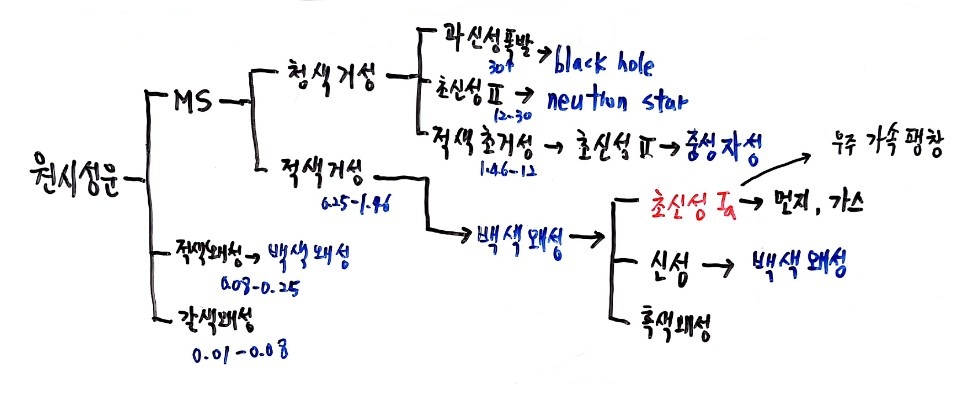 과신성폭발 → black hole
30↑
청색거성
초신성 II → neution star
12-30
MS
적색 초거성 → 초신성 II → 중성자성
1.46-12
우주 가속 팽창
원시성운
적색거성
0.25-1.46
초신성 Ia → 먼지, 가스
백색왜성 →
적색왜성 → 백색왜성
0.08-0.25
신성 → 백색왜성
갈색왜성
0.01-0.08
흑색왜성